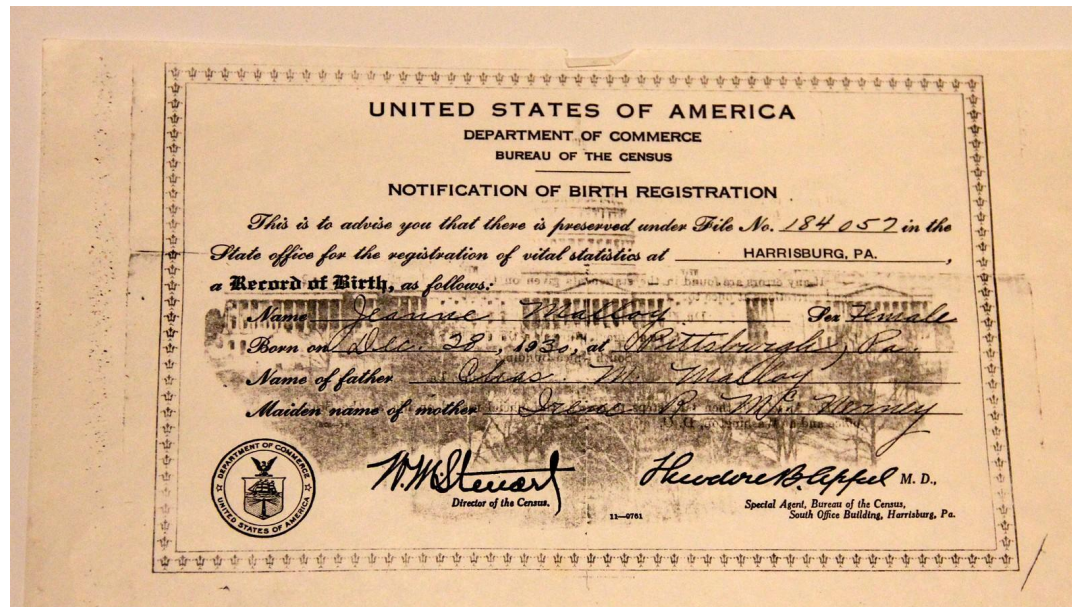 UNITED STATES OF AMERICA
DEPARTMENT OF COMMERCE
BUREAU OF THE CENSUS
NOTIFICATION OF BIRTH REGISTRATION
This is to advise you that there is preserved under File No. 184057 in the
State office for the registration of vital statistics at HARRISBURG, PA.,
a Record of Birth, as follows:
Name Jeanne Malloy Sex Female
Born on Dec. 28, 1930, at Pittsburgh, Pa.
Name of father Chas. M. Malloy
Maiden name of mother Irene R. Mc
DEPARTMENT OF COMMERCE
UNITED STATES OF AMERICA
W. M. Steuart
Director of the Census.
11—0761
Theodore B. Appel M. D.,
Special Agent, Bureau of the Census,
South Office Building, Harrisburg, Pa.